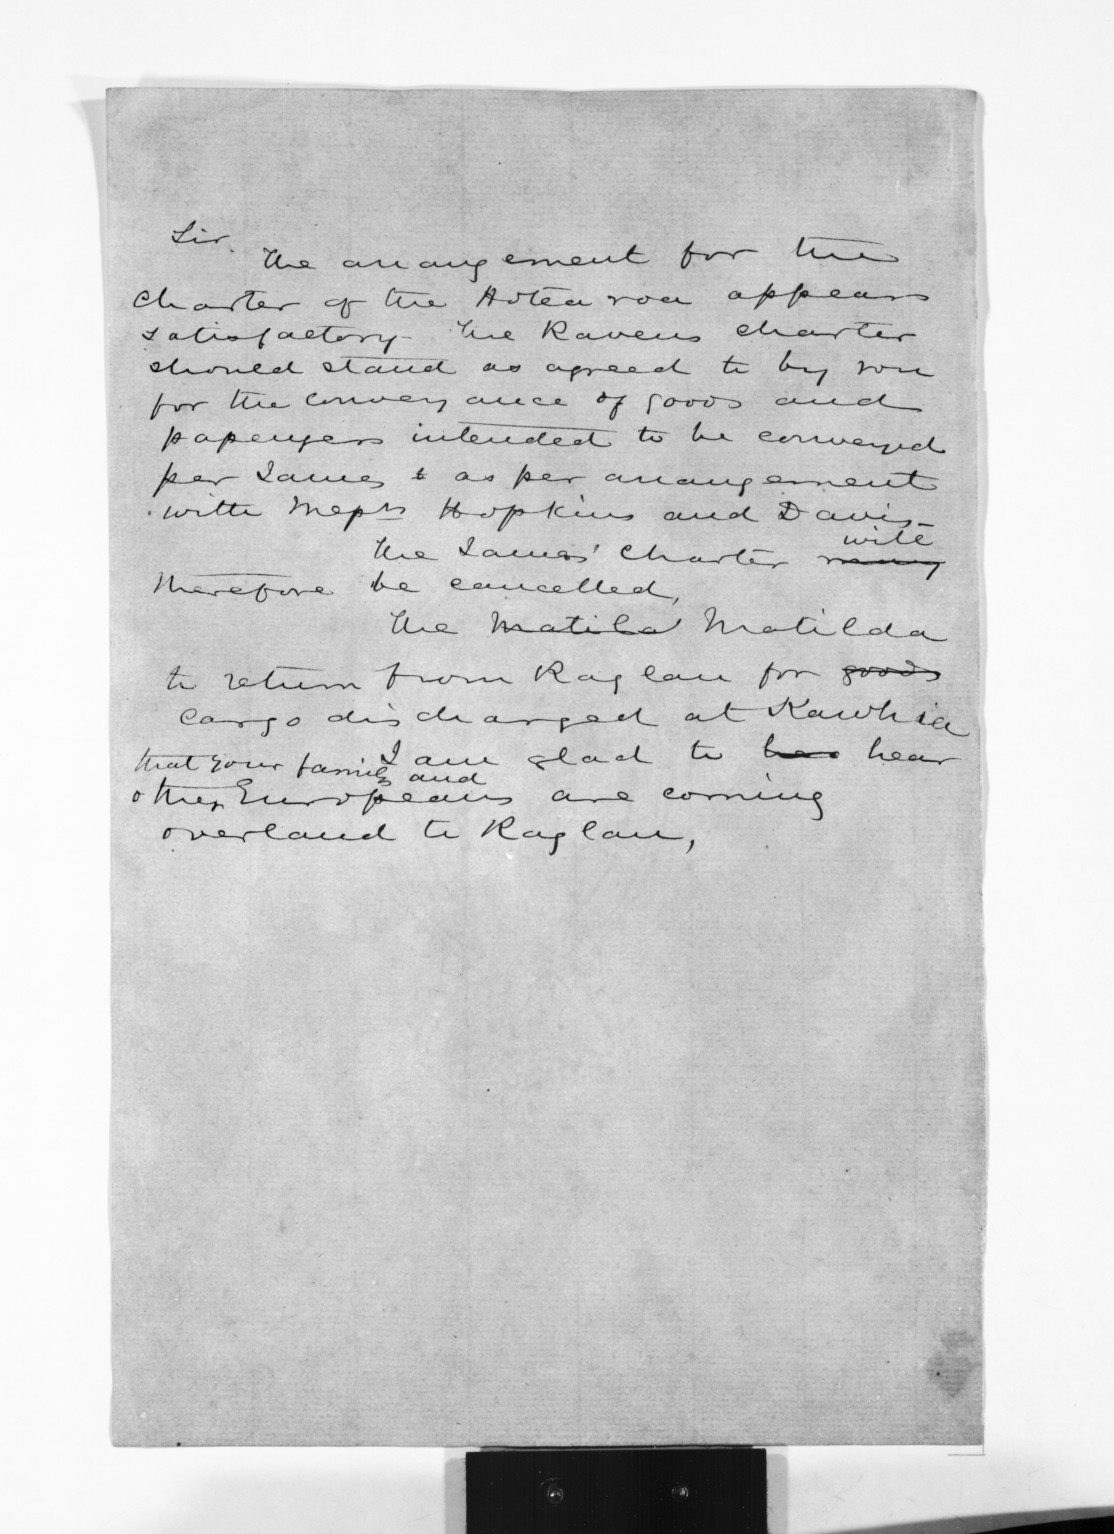 Sir.
The arrangement for the
charter of the Hotea roa appears
satisfactory - The Ravens charter
should stand as agreed to by you
for the conveyance of goods and
passengers intended to be conveyed
per James & as per arrangement
with Messrs Hopkins and Davis -
will
The James' charter may
therefore be cancelled,
The Matilda Matilda
to return from Raglan for goods
cargo discharged at Kawhia
I am glad to hea hear
that your family and
other Europeans are coming
overland to Raglan,